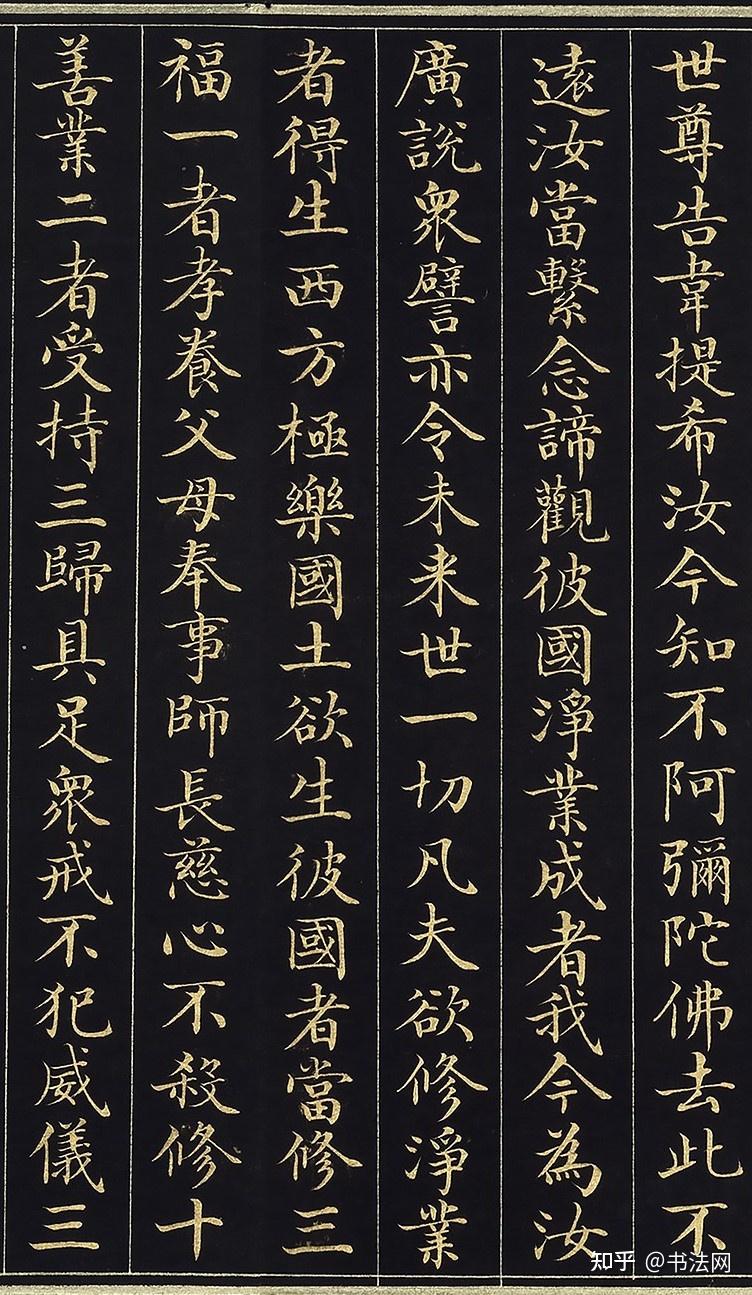 世尊告韋提希汝今知不阿彌陀佛去此不
遠汝當繫念諦觀彼國淨業成者我今為汝
廣說衆譬亦令未来世一切凡夫欲修淨業
者得生西方極樂國土欲生彼國者當修三
福一者孝養父母奉事師長慈心不殺修十
善業二者受持三歸具足衆戒不犯威儀三
知乎 @书法网